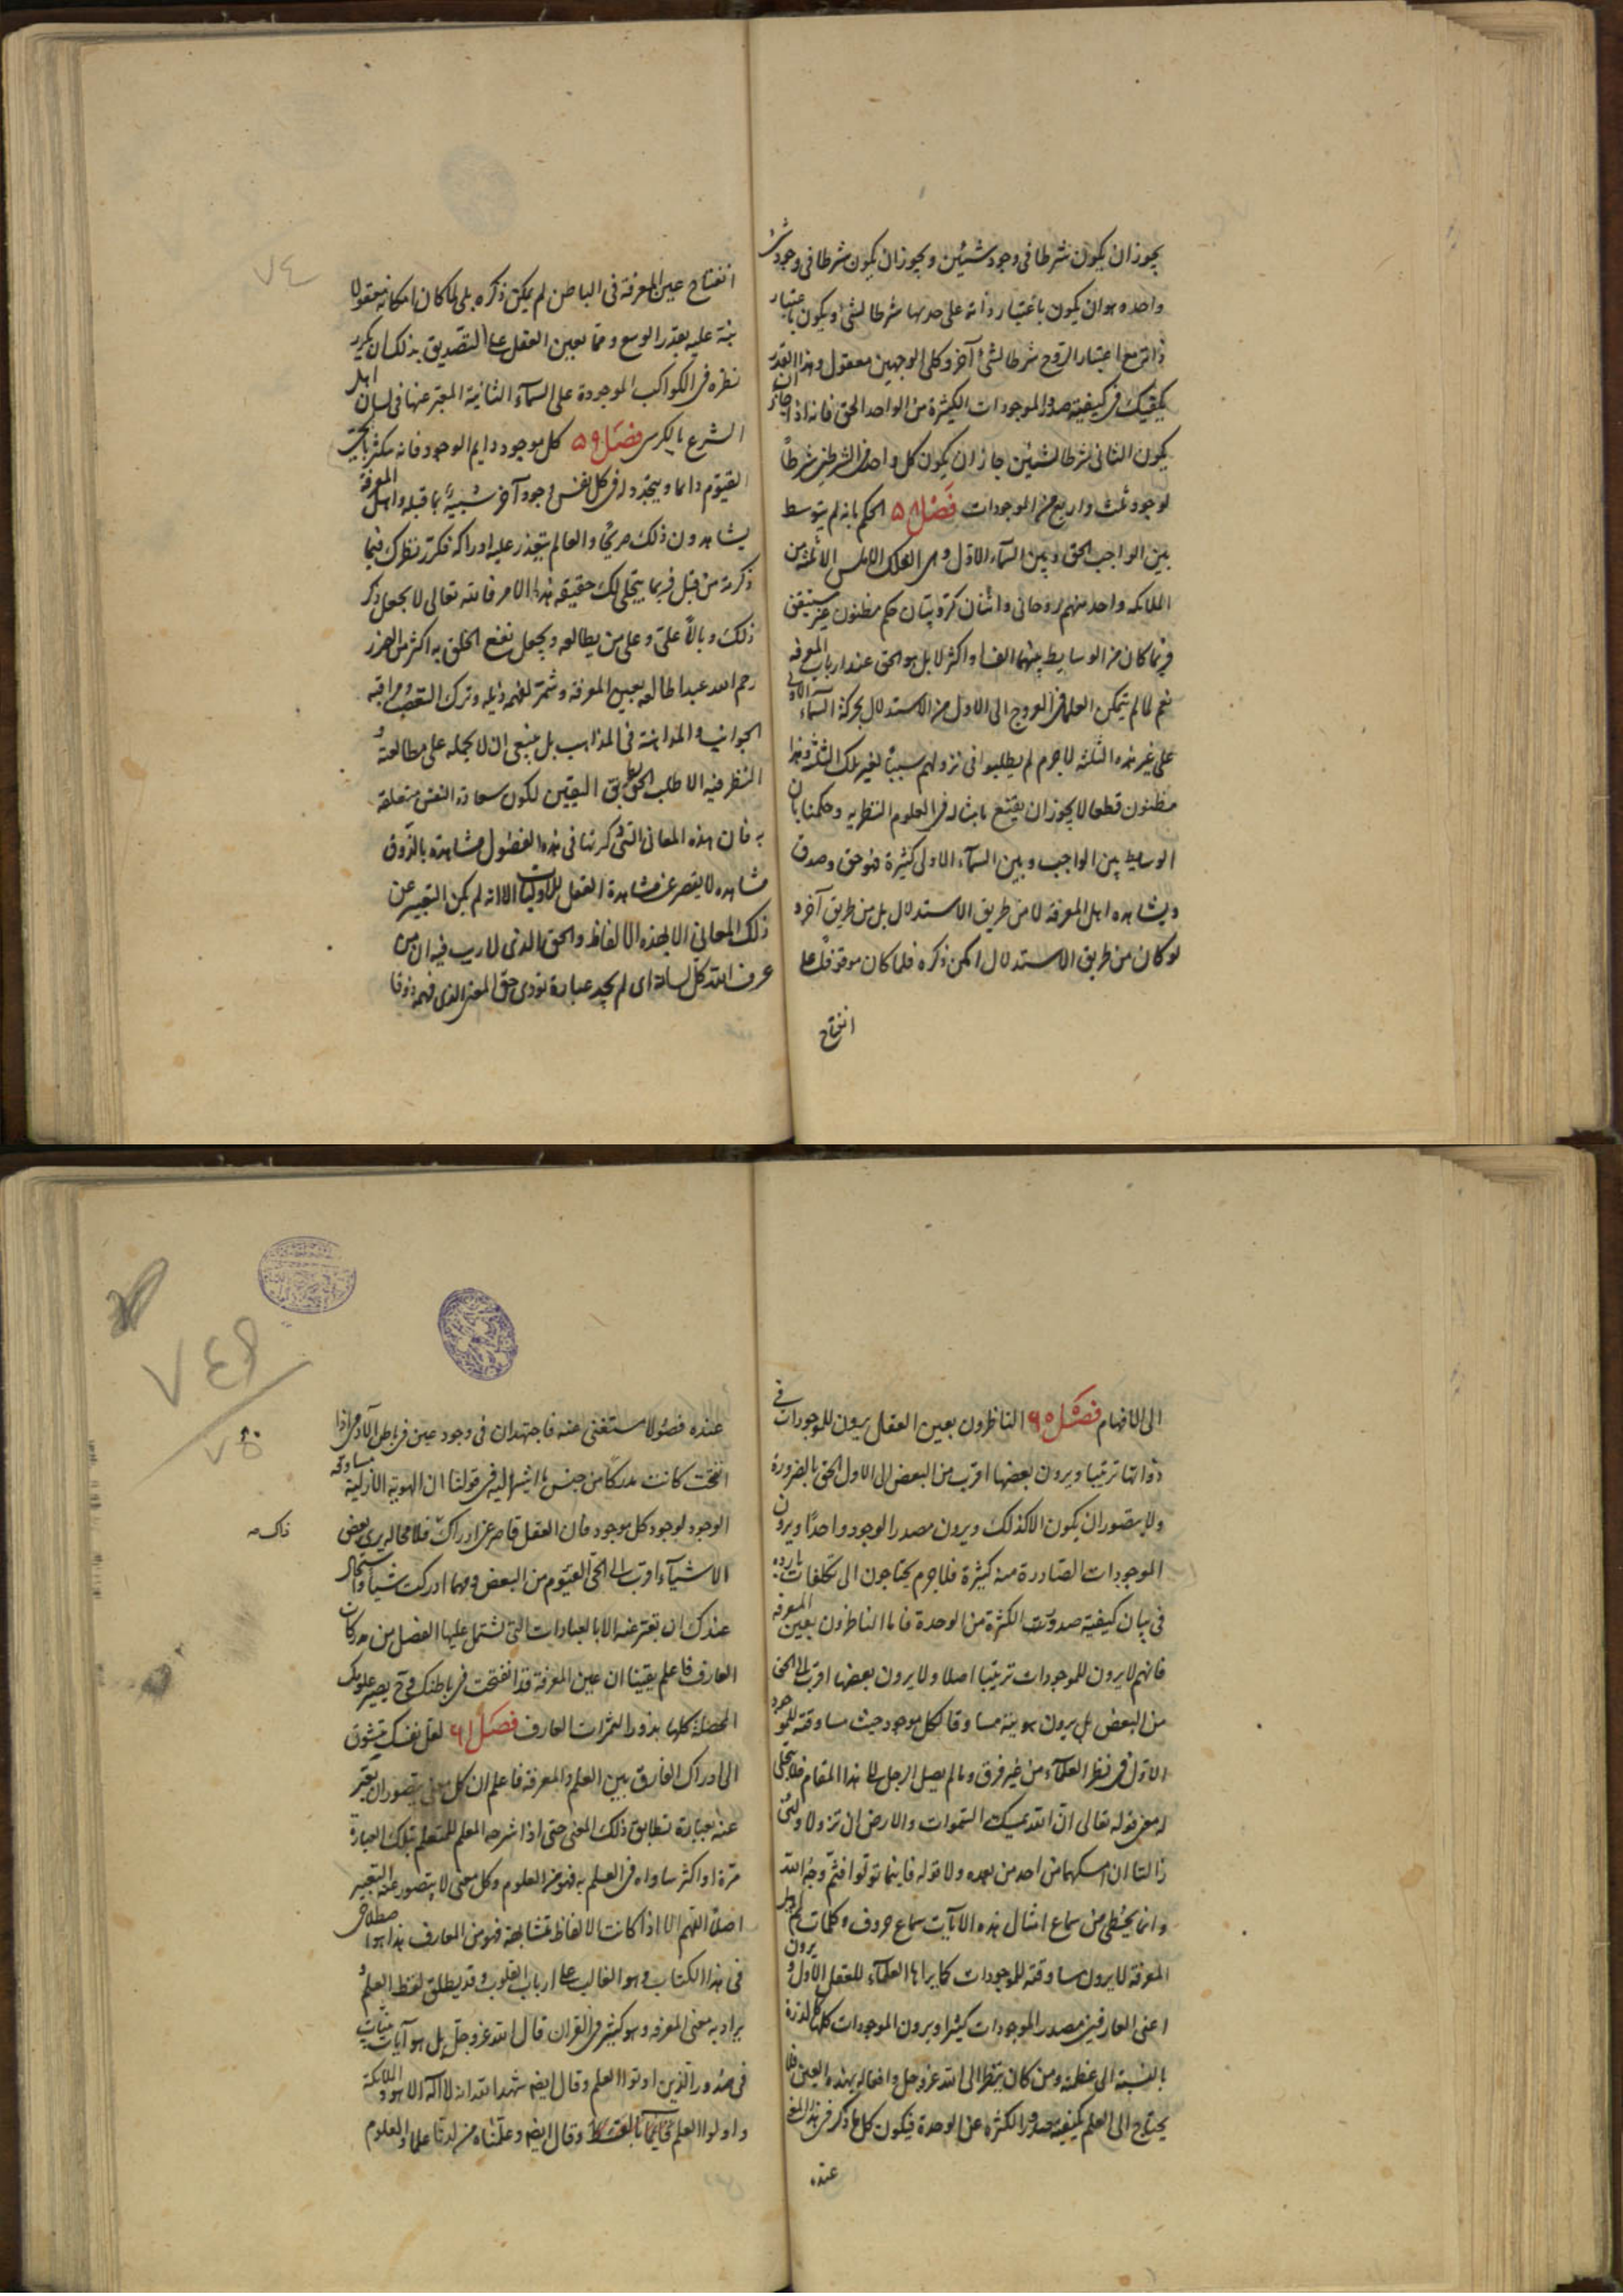 يجوز ان يكون شرطا فى وجود شيئين ويجوز ان يكون شرطا فى وجود شئ
واحد وهو ان يكون باعتبار ذاته على حدتها شرطا لشئ ويكون باعتبار
ذاته مع اعتبار الزوج شرطا لشئ آخر وكلى الوجهين معقول وهذا القدر
يكفيك فى كيفية صدور الموجودات الكثيرة من الواحد الحق فانه اذا جاز ان
يكون الثانى شرطا لشيئين جاز ان يكون كل واحد من الشرطين شرطاً
لوجود ثلث واربع من الموجودات فصل ٥٨ الحكم بانه لم يتوسط
بين الواجب الحق وبين السماء الاول وهى الفلك الاطلس الا ثلثه من
الملايكه واحد منهم روحانى واثنان كروبيان حكم مظنون غير مستيقن
فربما كان من الوسايط بينهما الف او اكثر لا بل هو الحق عند ارباب المعرفه
نعم لما لم يتمكن العلما فى العروج الى الاول من الاستدلال بحركة السماء الاولى
على غير هذه الثلثه لاجرم لم يطلبوا فى نزولهم سبباً لغير تلك الثلثة وهذا
مظنون قطعا لا يجوز ان يقتنع بامثاله فى العلوم النظريه وحكمنا بان
الوسايط بين الواجب وبين السماء الاولى كثيرة فهو حق وصدق
ويشاهده اهل المعرفة لا من طريق الاستدلال بل من طريق آخر و
لو كان من طريق الاستدلال امكن ذكره فلما كان موقوفا على
انفتاح
٧٤
انفتاح عين المعرفة فى الباطن لم يمكن ذكره بلى لما كان امكانه معقولا
نبه عليه بقدر الوسع ومما يعين العقل على التصديق بذلك ان يكرر
نظره فى الكواكب الموجودة على السماء الثانية المعبر عنها فى لسان اهل
الشرع بالكرسى فصل ٥٩ كل موجود دايم الوجود فانه متكثر بالحى
القيوم دائما ويتجدد له فى كل نفس وجود آخر شبيه بما قبله واهل المعرفة
يشاهدون ذلك صريحا والعالم يتعذر عليه ادراكه فكرر نظرك فيما
ذكرته من قبل فربما يتجلى لك حقيقة هذا الامر فالله تعالى لا يجعل ذكر
ذلك وبالاً على وعلى من يطالعه ويجعل نفع الخلق به اكثر من الضرر
رحم الله عبدا طالعه بعين المعرفة وشمر لفهمه ذيله وترك التعصب ومراقبة
الجوانب والمداهنة فى المذاهب بل ينبغى ان لا يحمله على مطالعته و
النظر فيه الا طلب الحق بطريق اليقين لكون سعادة النفس متعلقة
به فان هذه المعانى التى ذكرتها فى هذه الفصول مشاهدة بالذوق
مشاهده لا يقصر عن مشاهدة العقل للاوليات الا انه لم يمكن التعبير عن
ذلك المعانى الا بهذه الالفاظ والحق الذى لا ريب فيه ان من
عرف الله كل لسانه اى لم يجد عبارة تؤدى حق المعنى الذى فهمه ذوقا
الى الافهام فصل ٦٠ الناظرون بعين العقل يرون للموجودات فى
ذواتها ترتيبا ويرون بعضها اقرب من البعض الى الاول الحق بالضرورة
ولا يتصور ان يكون الا كذلك ويرون مصدر الوجود واحدا ويرون
الموجودات الصادرة منه كثيرة فلاجرم يحتاجون الى تكلفات بارده
فى بيان كيفية صدور الكثرة من الوحدة فاما الناظرون بعين المعرفه
فانهم لا يرون للموجودات ترتيبا اصلا ولا يرون بعضها اقرب الى الحق
من البعض بل يرون هويته مساوقا لكل موجود حيث مساوقته للموجود
الاول فى نظر العلماء من غير فرق وما لم يصل الرجل الى هذا المقام فلا يتجلى
له معنى قوله تعالى ان الله يمسك السموات والارض ان تزولا ولئن
زالتا ان امسكهما من احد من بعده ولا قوله فاينما تولوا فثم وجه الله
وانما يحظى من سماع امثال هذه الايات سماع حروف وكلمات
المعرفة لا يرون مساوقته للموجودات كما يراها العلماء للعقل الاول و يرون
اعنى العارفين مصدر الموجودات كثيرا ويرون الموجودات كلها كالذرة
بالنسبة الى عظمته ومن كان ينظر الى الله عز وجل وافعاله بهذه العين فلا
يحتاج الى العلم بكيفية صدور الكثره عن الوحدة فيكون كل ما ذكر فى هذا المعنى
عنده
٧٤٩
٧٥
عنده فضولا مستغنى عنه فاجتهد ان فى وجود عين فى باطن الآدمى اذا
انفتحت كانت مدركا من جنس ما اشير اليه فى قولنا ان الهوية الازلية مساوقة
الوجود لوجود كل موجود فان العقل قاصر عن ادراك فلا محاله يرى بعض
ذاك صـ
الاشياء اقرب الى الحى القيوم من البعض ومهما ادركت شيئا واستحال
عندك ان تعبر عنه الا بالعبارات التى تشتمل عليها الفصل من مدركات
العارف فاعلم يقينا ان عين المعرفة قد انفتحت فى باطنك وح يصير علومك
المحصلة كلها بذور الثمرات المعارف فصل ٦١ لعل نفسك يتشوق
الى ادراك الفارق بين العلم والمعرفة فاعلم ان كل معنى يتصور ان يعبر
عنه بعبارة تطابق ذلك المعنى حتى اذا شرحه المعلم للمتعلم بتلك العبارة
مرة او اكثر ساواه فى العلم به فهو من العلوم وكل معنى لا يتصور عنه التعبير
اصلا اللهم الا اذا كانت الالفاظ متشابهة فهو من المعارف هذا هو اصطلاحى
فى هذا الكتاب وهو الغالب على ارباب القلوب وقد يطلق لفظ العلم و
يراد به معنى المعرفه وهو كثير فى القران قال الله عز وجل بل هو آيات بينات
فى صدور الذين اوتوا العلم وقال ايضه شهد الله انه لا اله الا هو والملائكة
واولوا العلم قائما بالقسط وقال ايضه وعلمناه من لدنا علما والعلوم